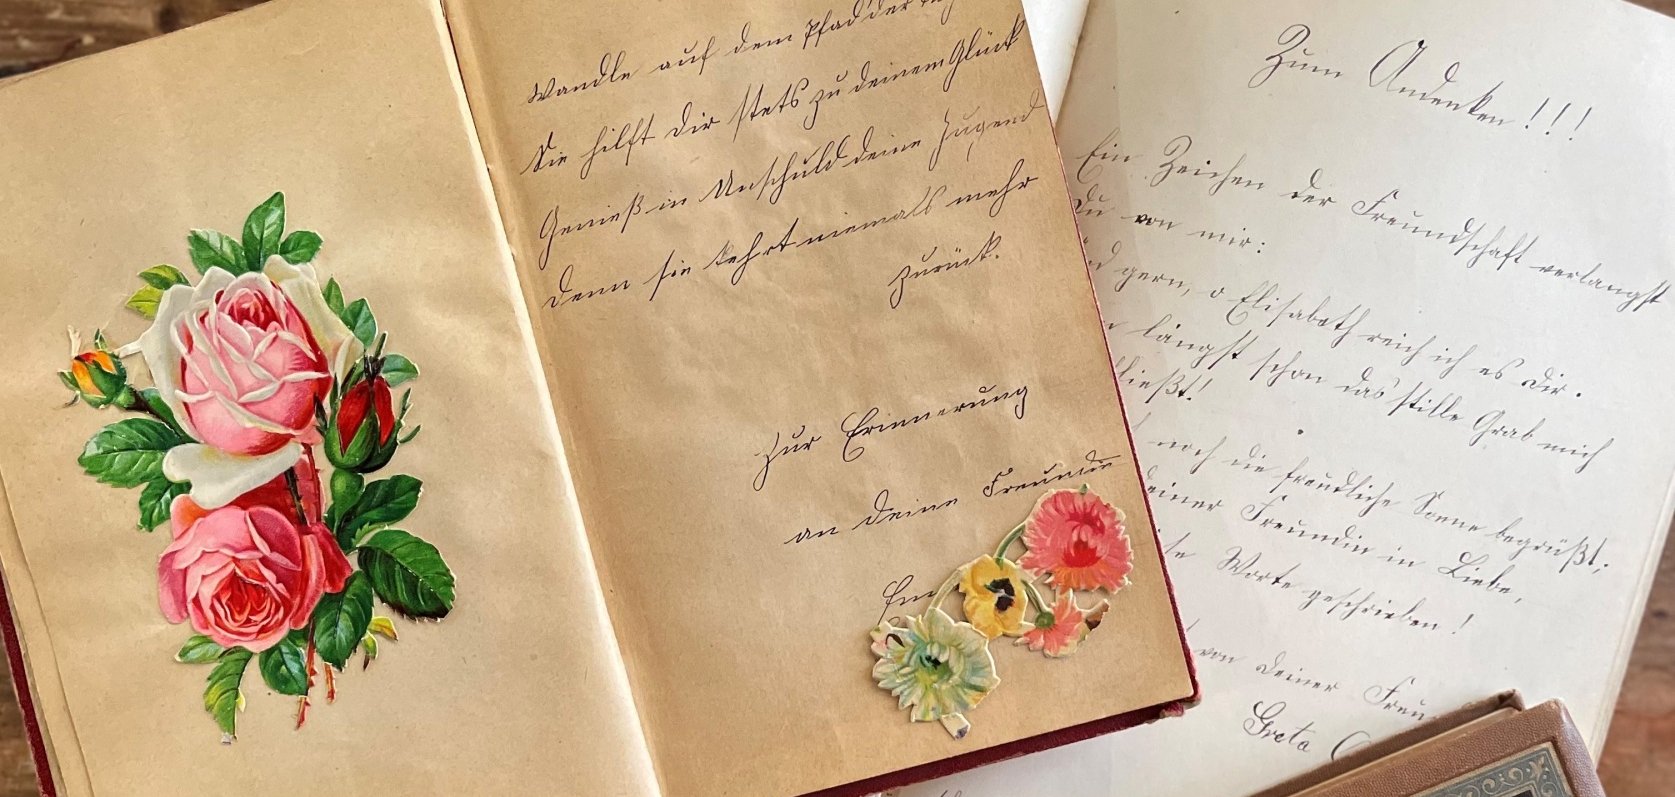 Wandle auf dem Pfad der
Sie hilft dir stets zu deinem Glück
Genieß in Unschuld deine Jugend
Denn sie kehrt niemals mehr
zurück.
Zur Erinnerung
an deine Freundin
Zum Andenken!!!
Ein Zeichen der Freundschaft verlangst
du von mir:
gern, o Elisabeth reich ich es dir.
längst schon das stille Grab mich
ließt!
noch die freudliche Sonne begrüßt,
deiner Freundin in Liebe,
Worte geschrieben!
von deiner Freun
Greta